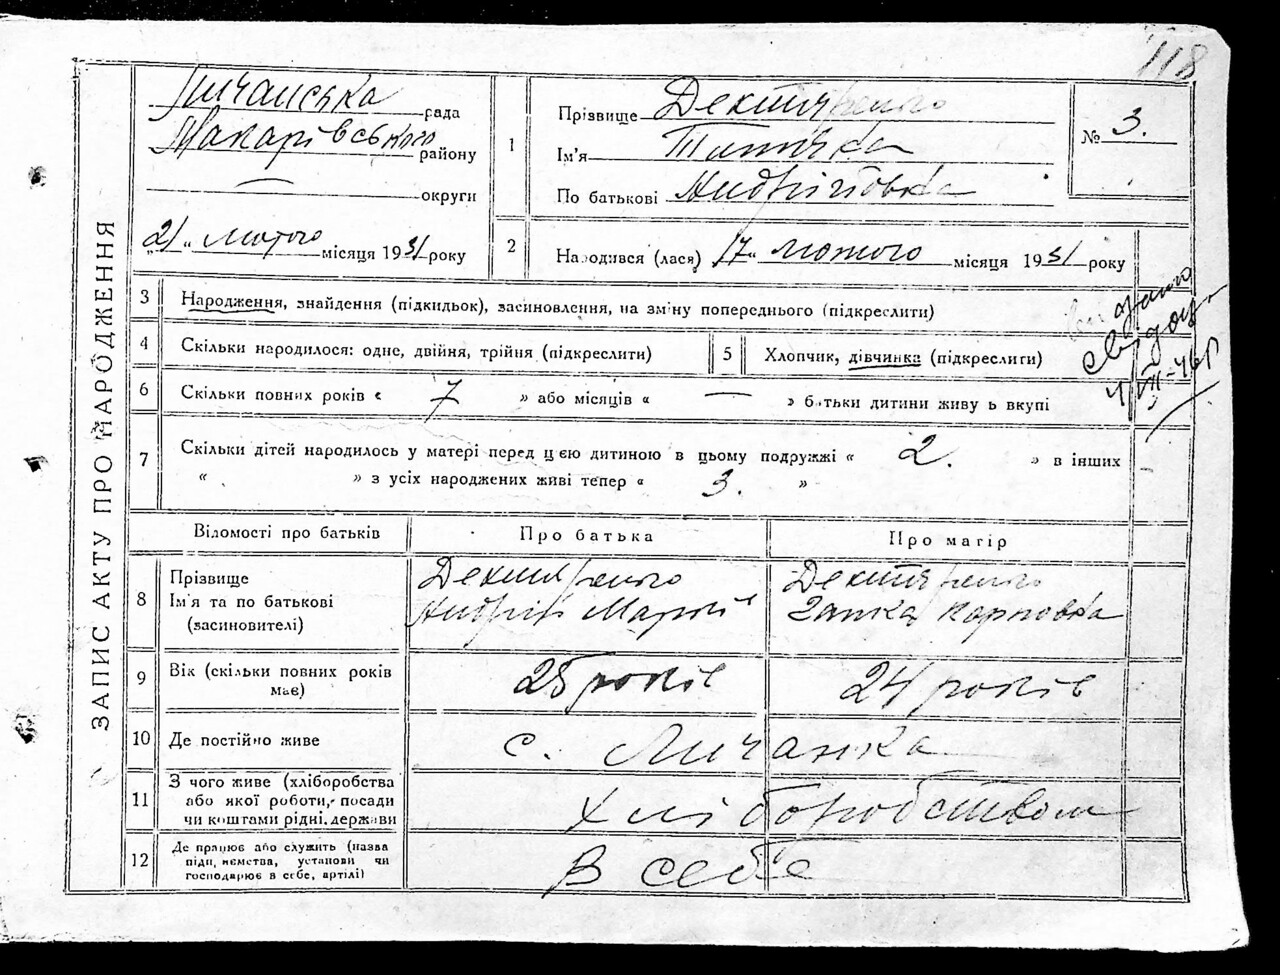 118
ЗАПИС АКТУ ПРО НАРОДЖЕННЯ
Личанська рада
Макарівського району
— округи
"21" лютого місяця 1931 року
1
Прізвище
Ім'я
По батькові Андріївна
№ 3.
2
Народився (лася) "17" лютого місяця 1931 року
3 Народження, знайдення (підкидьок), засиновлення, на зміну попереднього (підкреслити)
4 Скільки народилося: одне, двійня, трійня (підкреслити)
5 Хлопчик, дівчинка (підкреслити)
6 Скільки повних років « 7 » або місяців « — » батьки дитини живуть вкупі
7 Скільки дітей народилось у матері перед цією дитиною в цьому подружжі « 2. » в інших
« » з усіх народжених живі тепер « 3. »
видано
свідоц.
4/VII-46р
Відомості про батьків
Про батька
Про матір
8 Прізвище
Ім'я та по батькові
(засиновителі)
Андрій
Карповна
9 Вік (скільки повних років має)
25 років
24 років
10 Де постійно живе
с. Личанка
11 З чого живе (хліборобства
або якої роботи, посади
чи коштами рідні, держави
Хліборобством
12 Де працює або служить (назва
підприємства, установи чи
господарює в себе, артілі)
В себе